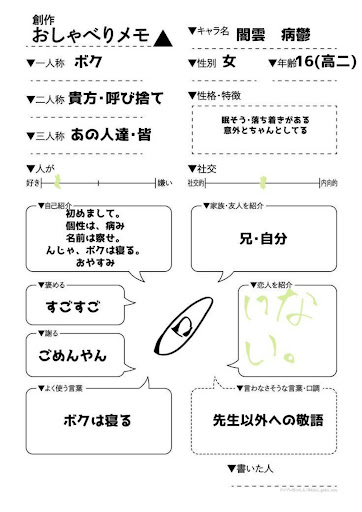 創作
おしゃべりメモ
▼キャラ名 闇雲 病鬱
▼一人称 ボク
▼性別 女
▼年齢 16(高二)
▼二人称 貴方・呼び捨て
▼性格・特徴
眠そう・落ち着きがある
意外とちゃんとしてる
▼三人称 あの人達・皆
▼人が
好き 嫌い
▼社交
社交的 内向的
▼自己紹介
初めまして。
個性は、病み
名前は察せ。
んじゃ、ボクは寝る。
おやすみ
▼家族・友人を紹介
兄・自分
▼褒める
すごすご
▼恋人を紹介
いない。
▼謝る
ごめんやん
▼よく使う言葉
ボクは寝る
▼言わなさそうな言葉・口調
先生以外への敬語
▼書いた人